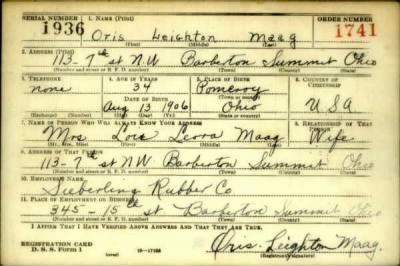 SERIAL NUMBER 1. NAME (Print) ORDER NUMBER
1936 Oris Leighton Maag 1741
(First) (Middle) (Last)
2. ADDRESS (Print)
113-7th st N.W Barberton Summit Ohio
(Number and street or R. F. D. number) (Town) (County) (State)
3. TELEPHONE 4. AGE IN YEARS 5. PLACE OF BIRTH 6. COUNTRY OF CITIZENSHIP
none 34 Pomeroy
DATE OF BIRTH
Aug 13 1906 Ohio USA
7. NAME OF PERSON WHO WILL ALWAYS KNOW YOUR ADDRESS 8. RELATIONSHIP OF THAT PERSON
Mrs Lois Leora Maag Wife
(Mr., Mrs., Miss) (First) (Middle) (Last)
9. ADDRESS OF THAT PERSON
113-7th st NW Barberton Summit Ohio
(Number and street or R. F. D. number) (Town) (County) (State)
10. EMPLOYER'S NAME
Sieberling Rubber Co
11. PLACE OF EMPLOYMENT OR BUSINESS
345-15th st Barberton Summit Ohio
(Number and street or R. F. D. number) (Town) (County) (State)
I AFFIRM THAT I HAVE VERIFIED ABOVE ANSWERS AND THAT THEY ARE TRUE.
REGISTRATION CARD
D. S. S. FORM 1 Oris Leighton Maag.
(Registrant's signature)